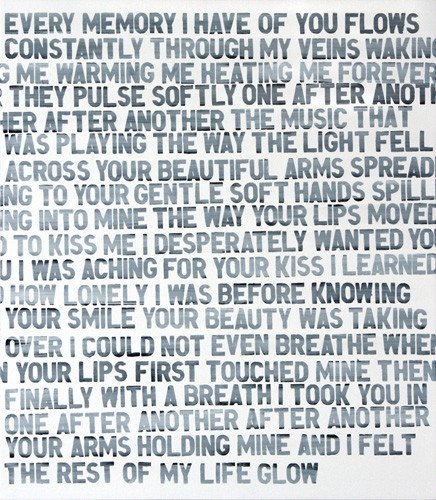 EVERY MEMORY I HAVE OF YOU FLOWS
CONSTANTLY THROUGH MY VEINS WAKING
G ME WARMING ME HEATING ME FOREVER
R THEY PULSE SOFTLY ONE AFTER ANOTH
HER AFTER ANOTHER THE MUSIC THAT
WAS PLAYING THE WAY THE LIGHT FELL
ACROSS YOUR BEAUTIFUL ARMS SPREAD
ING TO YOUR GENTLE SOFT HANDS SPILL
ING INTO MINE THE WAY YOUR LIPS MOVED
D TO KISS ME I DESPERATELY WANTED YO
U I WAS ACHING FOR YOUR KISS I LEARNED
D HOW LONELY I WAS BEFORE KNOWING
YOUR SMILE YOUR BEAUTY WAS TAKING
OVER I COULD NOT EVEN BREATHE WHEN
N YOUR LIPS FIRST TOUCHED MINE THEN
FINALLY WITH A BREATH I TOOK YOU IN
ONE AFTER ANOTHER AFTER ANOTHER
YOUR ARMS HOLDING MINE AND I FELT
THE REST OF MY LIFE GLOW